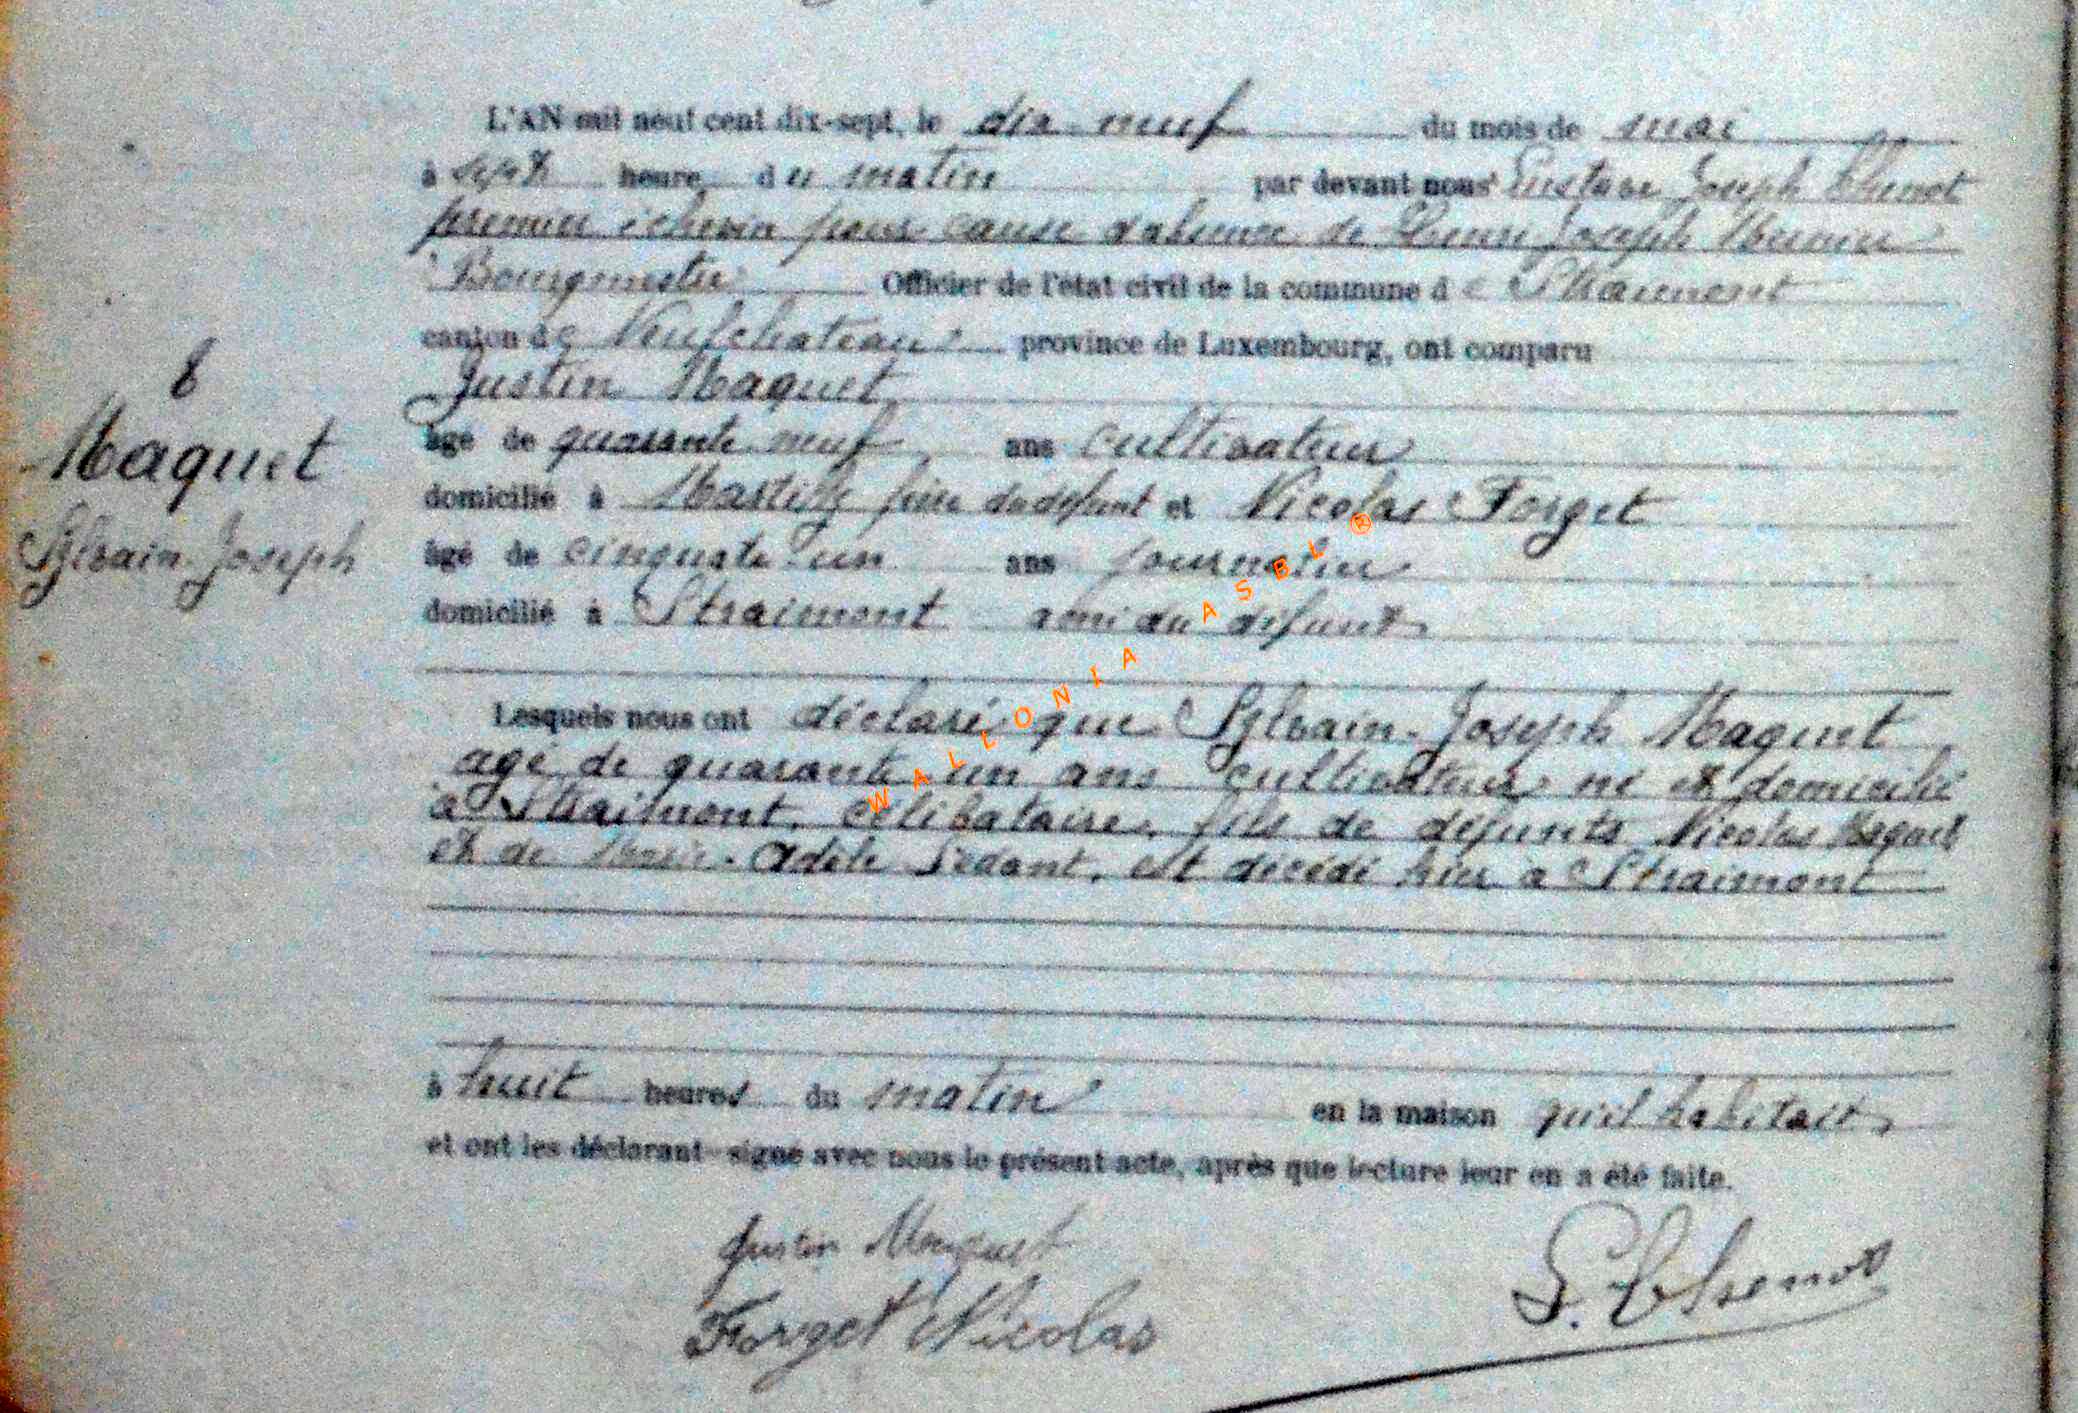 L'AN mil neuf cent dix-sept, le dix-neuf du mois de mai
à sept heure du matin par devant nous Gustave Joseph Thenot
premier échevin pour cause d'absence de Joseph
Bourgmestre Officier de l'état civil de la commune de Straimont
canton de Neufchateau province de Luxembourg, ont comparu
Justin Maquet
8
âgé de quarante neuf ans cultivateur
Maquet
domicilié à frère du défunt et Nicolas Forget
Sylvain-Joseph
âgé de cinquate-un ans journalier
domicilié à Straimont ami du défunt
Lesquels nous ont déclaré que Sylvain-Joseph Maquet
agé de quarante-un ans cultivateur né et domicilié
à Straimont, célibataire, fils de défunts Nicolas Maquet
et de Marie-Adèle est décédé hier à Straimont
à huit heures du matin en la maison qu'il habitait
et ont les déclarant signé avec nous le présent acte, après que lecture leur en a été faite.
Justin Maquet
Forget Nicolas
G. Thenot
WALLONIA ASBL ®